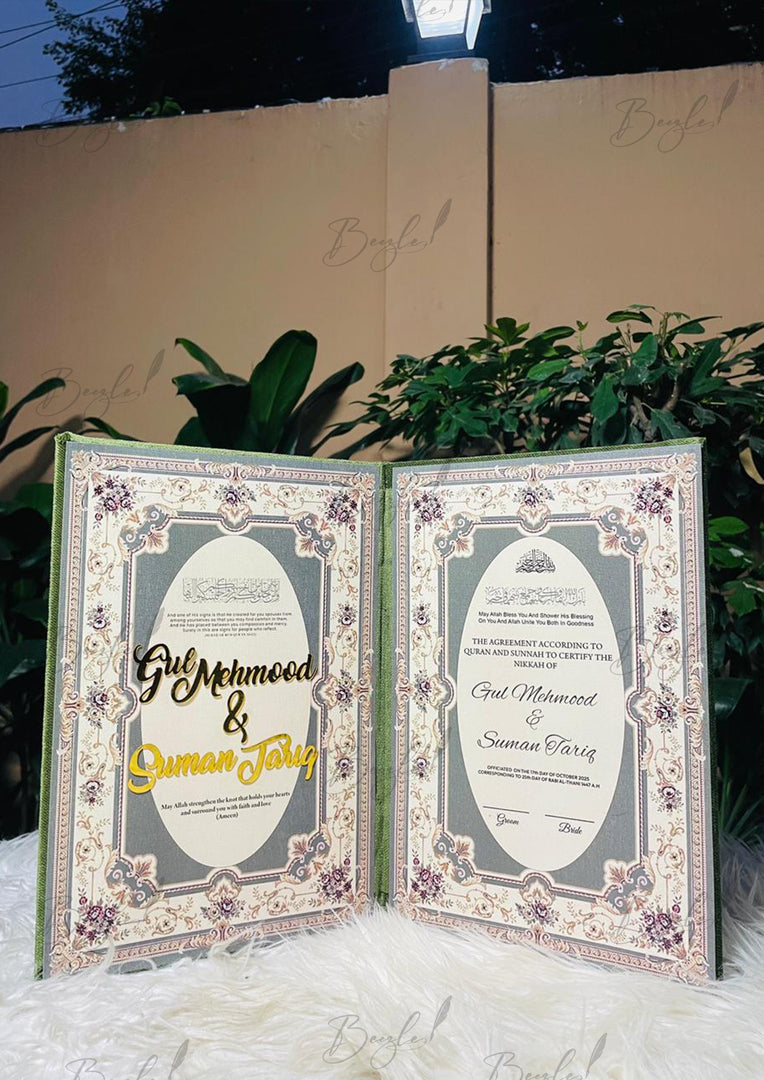 And one of His signs is that He created for you spouses from
among yourselves so that you may find comfort in them.
And He has placed between you compassion and mercy.
Surely in this are signs for people who reflect.
Gul Mehmood
&
Suman Tariq
May Allah strengthen the knot that holds your hearts
and surround you with faith and love
(Ameen)
May Allah Bless You And Shower His Blessing
On You And Allah Unite You Both In Goodness
THE AGREEMENT ACCORDING TO
QURAN AND SUNNAH TO CERTIFY THE
NIKKAH OF
Gul Mehmood
&
Suman Tariq
OFFICIATED ON THE 17TH DAY OF OCTOBER 2025
CORRESPONDING TO 25TH DAY OF RABI AL-THANI 1447 A.H
Groom
Bride
Beezle